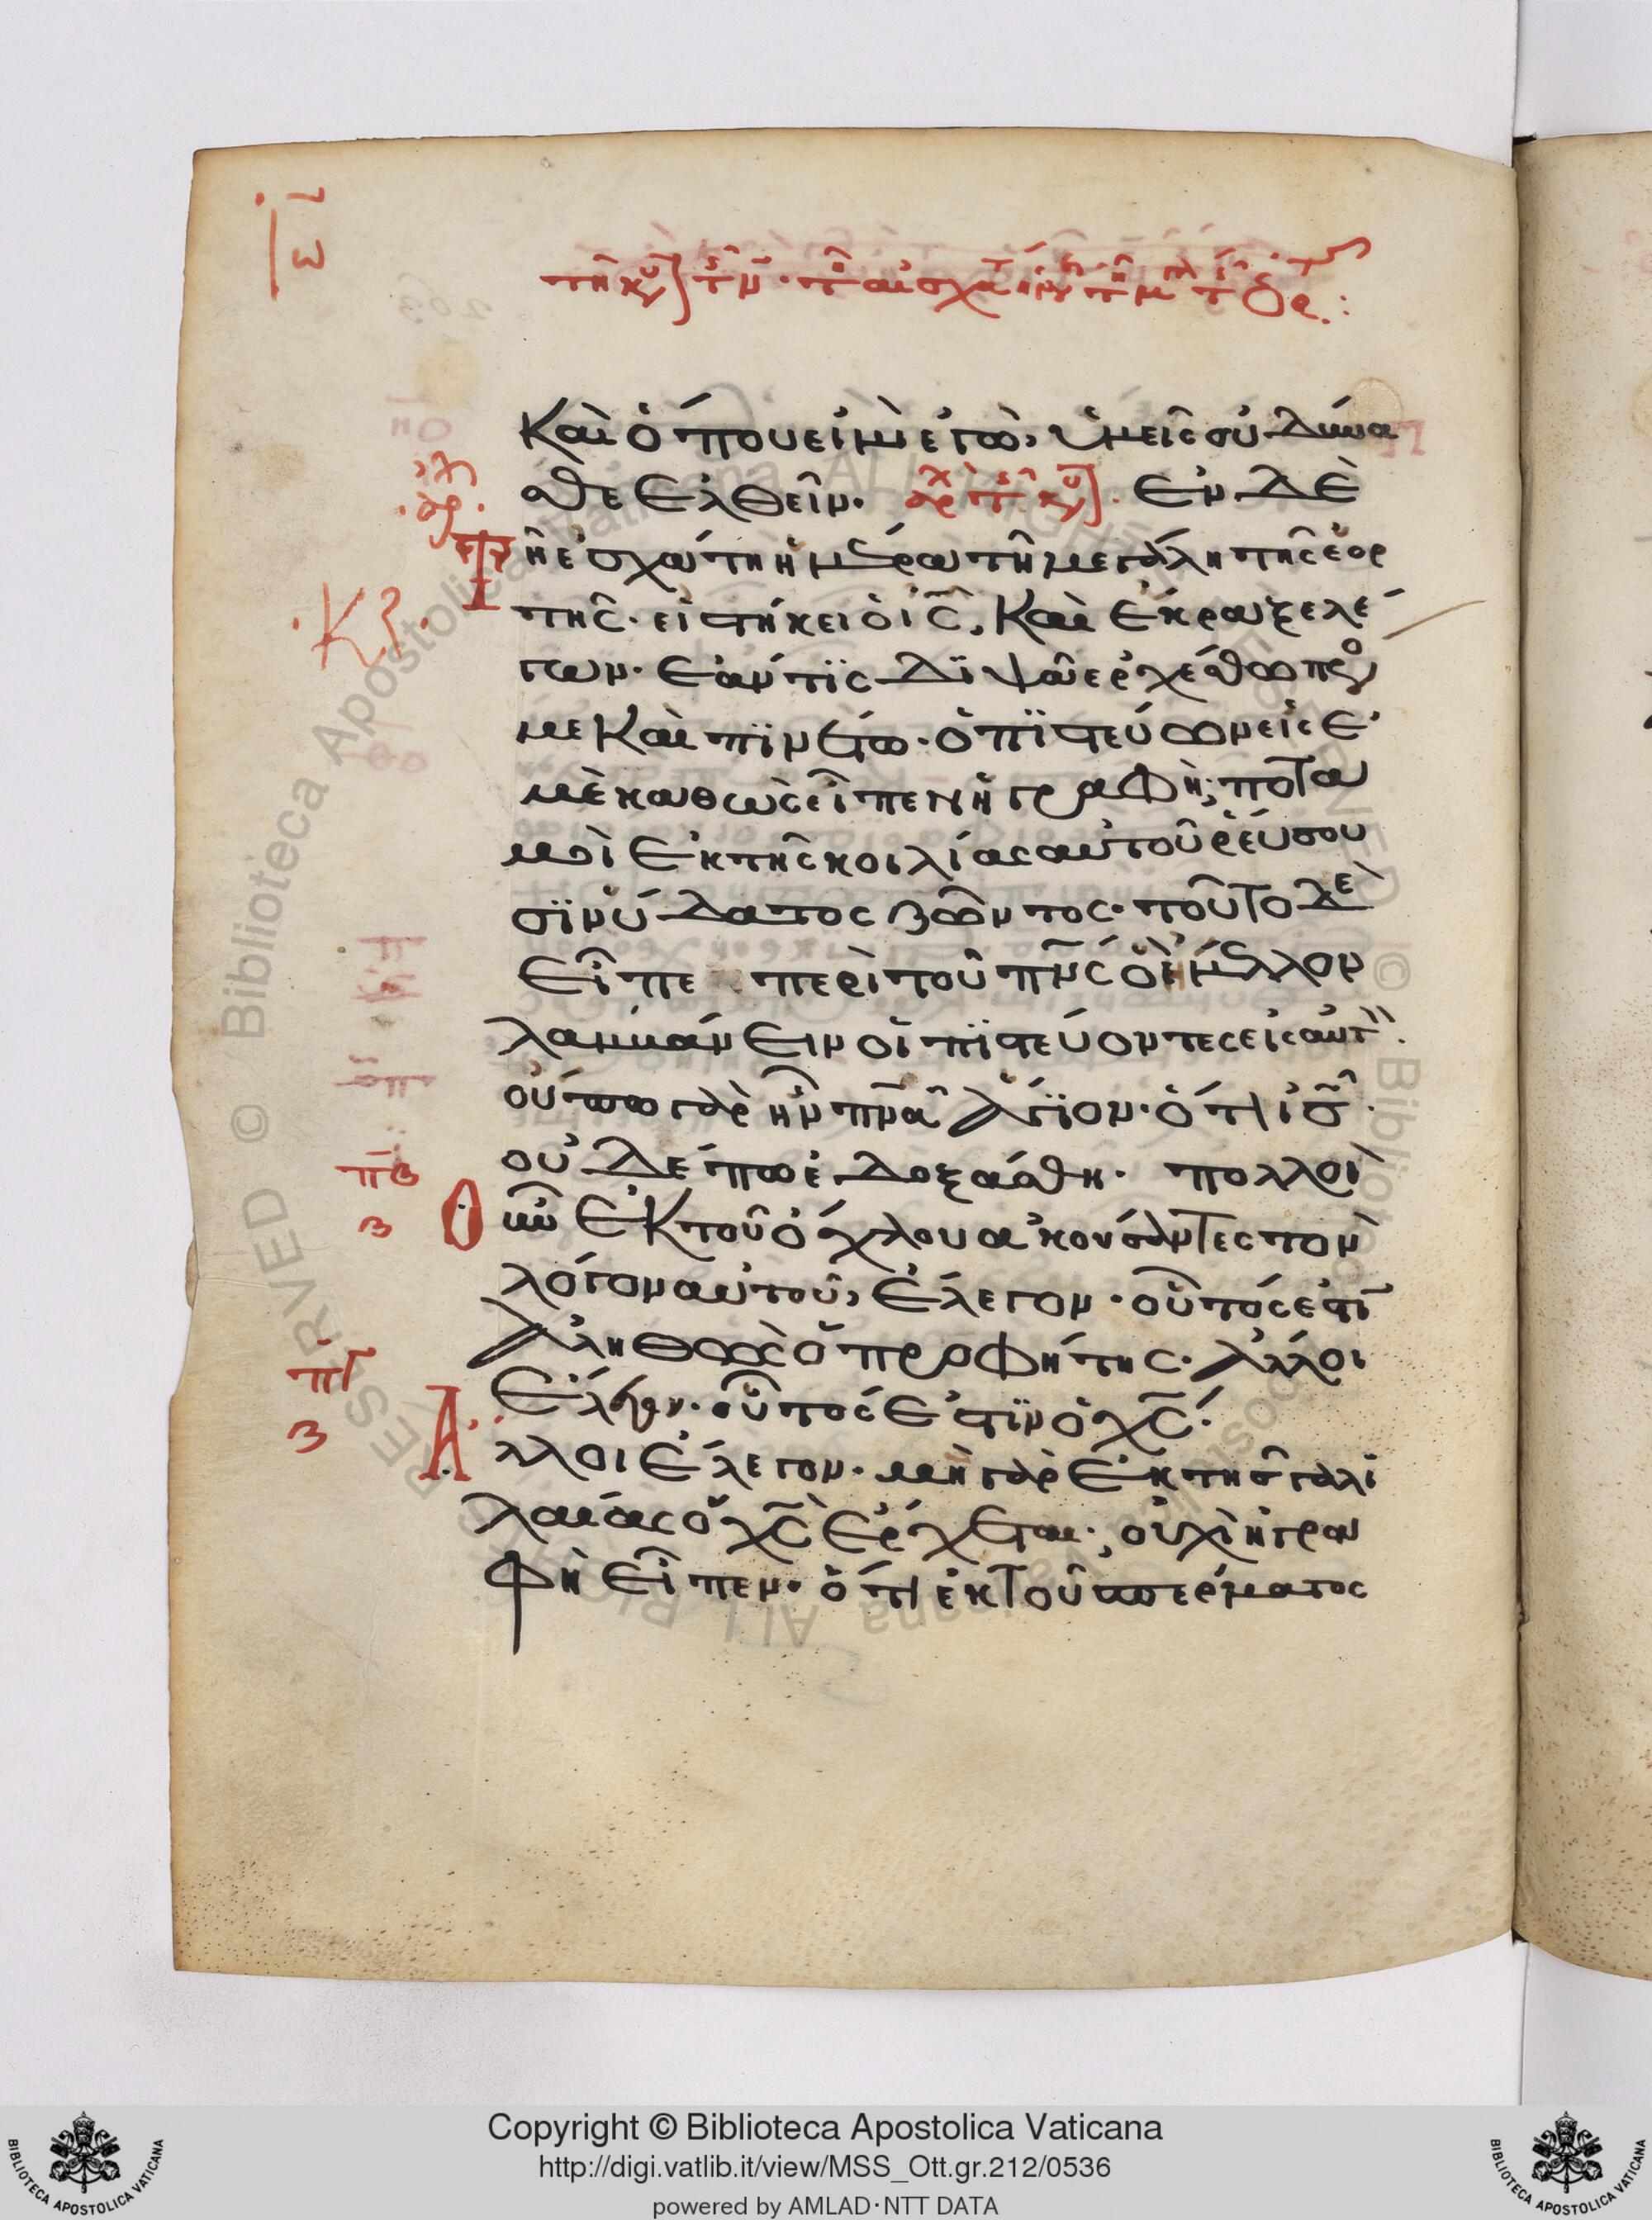 ιω
τῇ κυ τ ν · τ αι σχα ημρ τ μ τ ορ :
Καὶ ὅπου εἰμὶ ἐγὼ, ὑμεῖς οὐ δύνα
σθε ἐλθεῖν· αρ τ κυ · Ἐν δὲ
τῇ ἐσχάτη ἡμέρα τῆ μεγάλη τῆς ἑορ
τῆς· εἱστήκει ὁ ις̅, Καὶ ἔκραξε λέ
γων· Ἐάν τϊς δϊψᾶ ἐρχέσθω πρὸς
με Καὶ πϊνέτω· ὁ πϊστεύων εἰς ἐ
μὲ καθὼς εἶπεν ἡ γραφὴ; ποτα
μοὶ ἐκ τῆς κοιλίας αὐτοῦ ῥεύσου
σϊν ὕδατος ζῶντος· τοῦτο δὲ
εἶπε περὶ τοῦ πν̅ς οὗ ἔμελλον
λαμβάνειν οἱ πϊστεύοντες εἰς αὐτ
οὔπω γὰρ ἦν πν̅α ἅγϊον· ὅτι ις̅
οὐδέπω ἐδοξάσθη· πολλοὶ
οὖν ἐκ τοῦ ὄχλου ἀκούσαντες τὸν
λόγον αὐτοῦ, ἔλεγον· οὗτός ἐστϊ
ἀληθῶς ὁ προφήτης· ἄλλοι
ἔλεγον· οὗτός ἐστϊν ὁ χς̅·
Ἄλλοι ἔλεγον· μὴ γὰρ ἐκ τῆς γαλι
λαίας ὁ χς̅ ἔρχεται; οὐχὶ ἡ γρα
φὴ εἶπεν· ὅτι ἐκ τοῦ σπέρματος
αρ
κζ
πβ
ζ
πγ
ζ
Copyright © Biblioteca Apostolica Vaticana
http://digi.vatlib.it/view/MSS_Ott.gr.212/0536
powered by AMLAD·NTT DATA
BIBLIOTECA APOSTOLICA VATICANA
BIBLIOTECA APOSTOLICA VATICANA